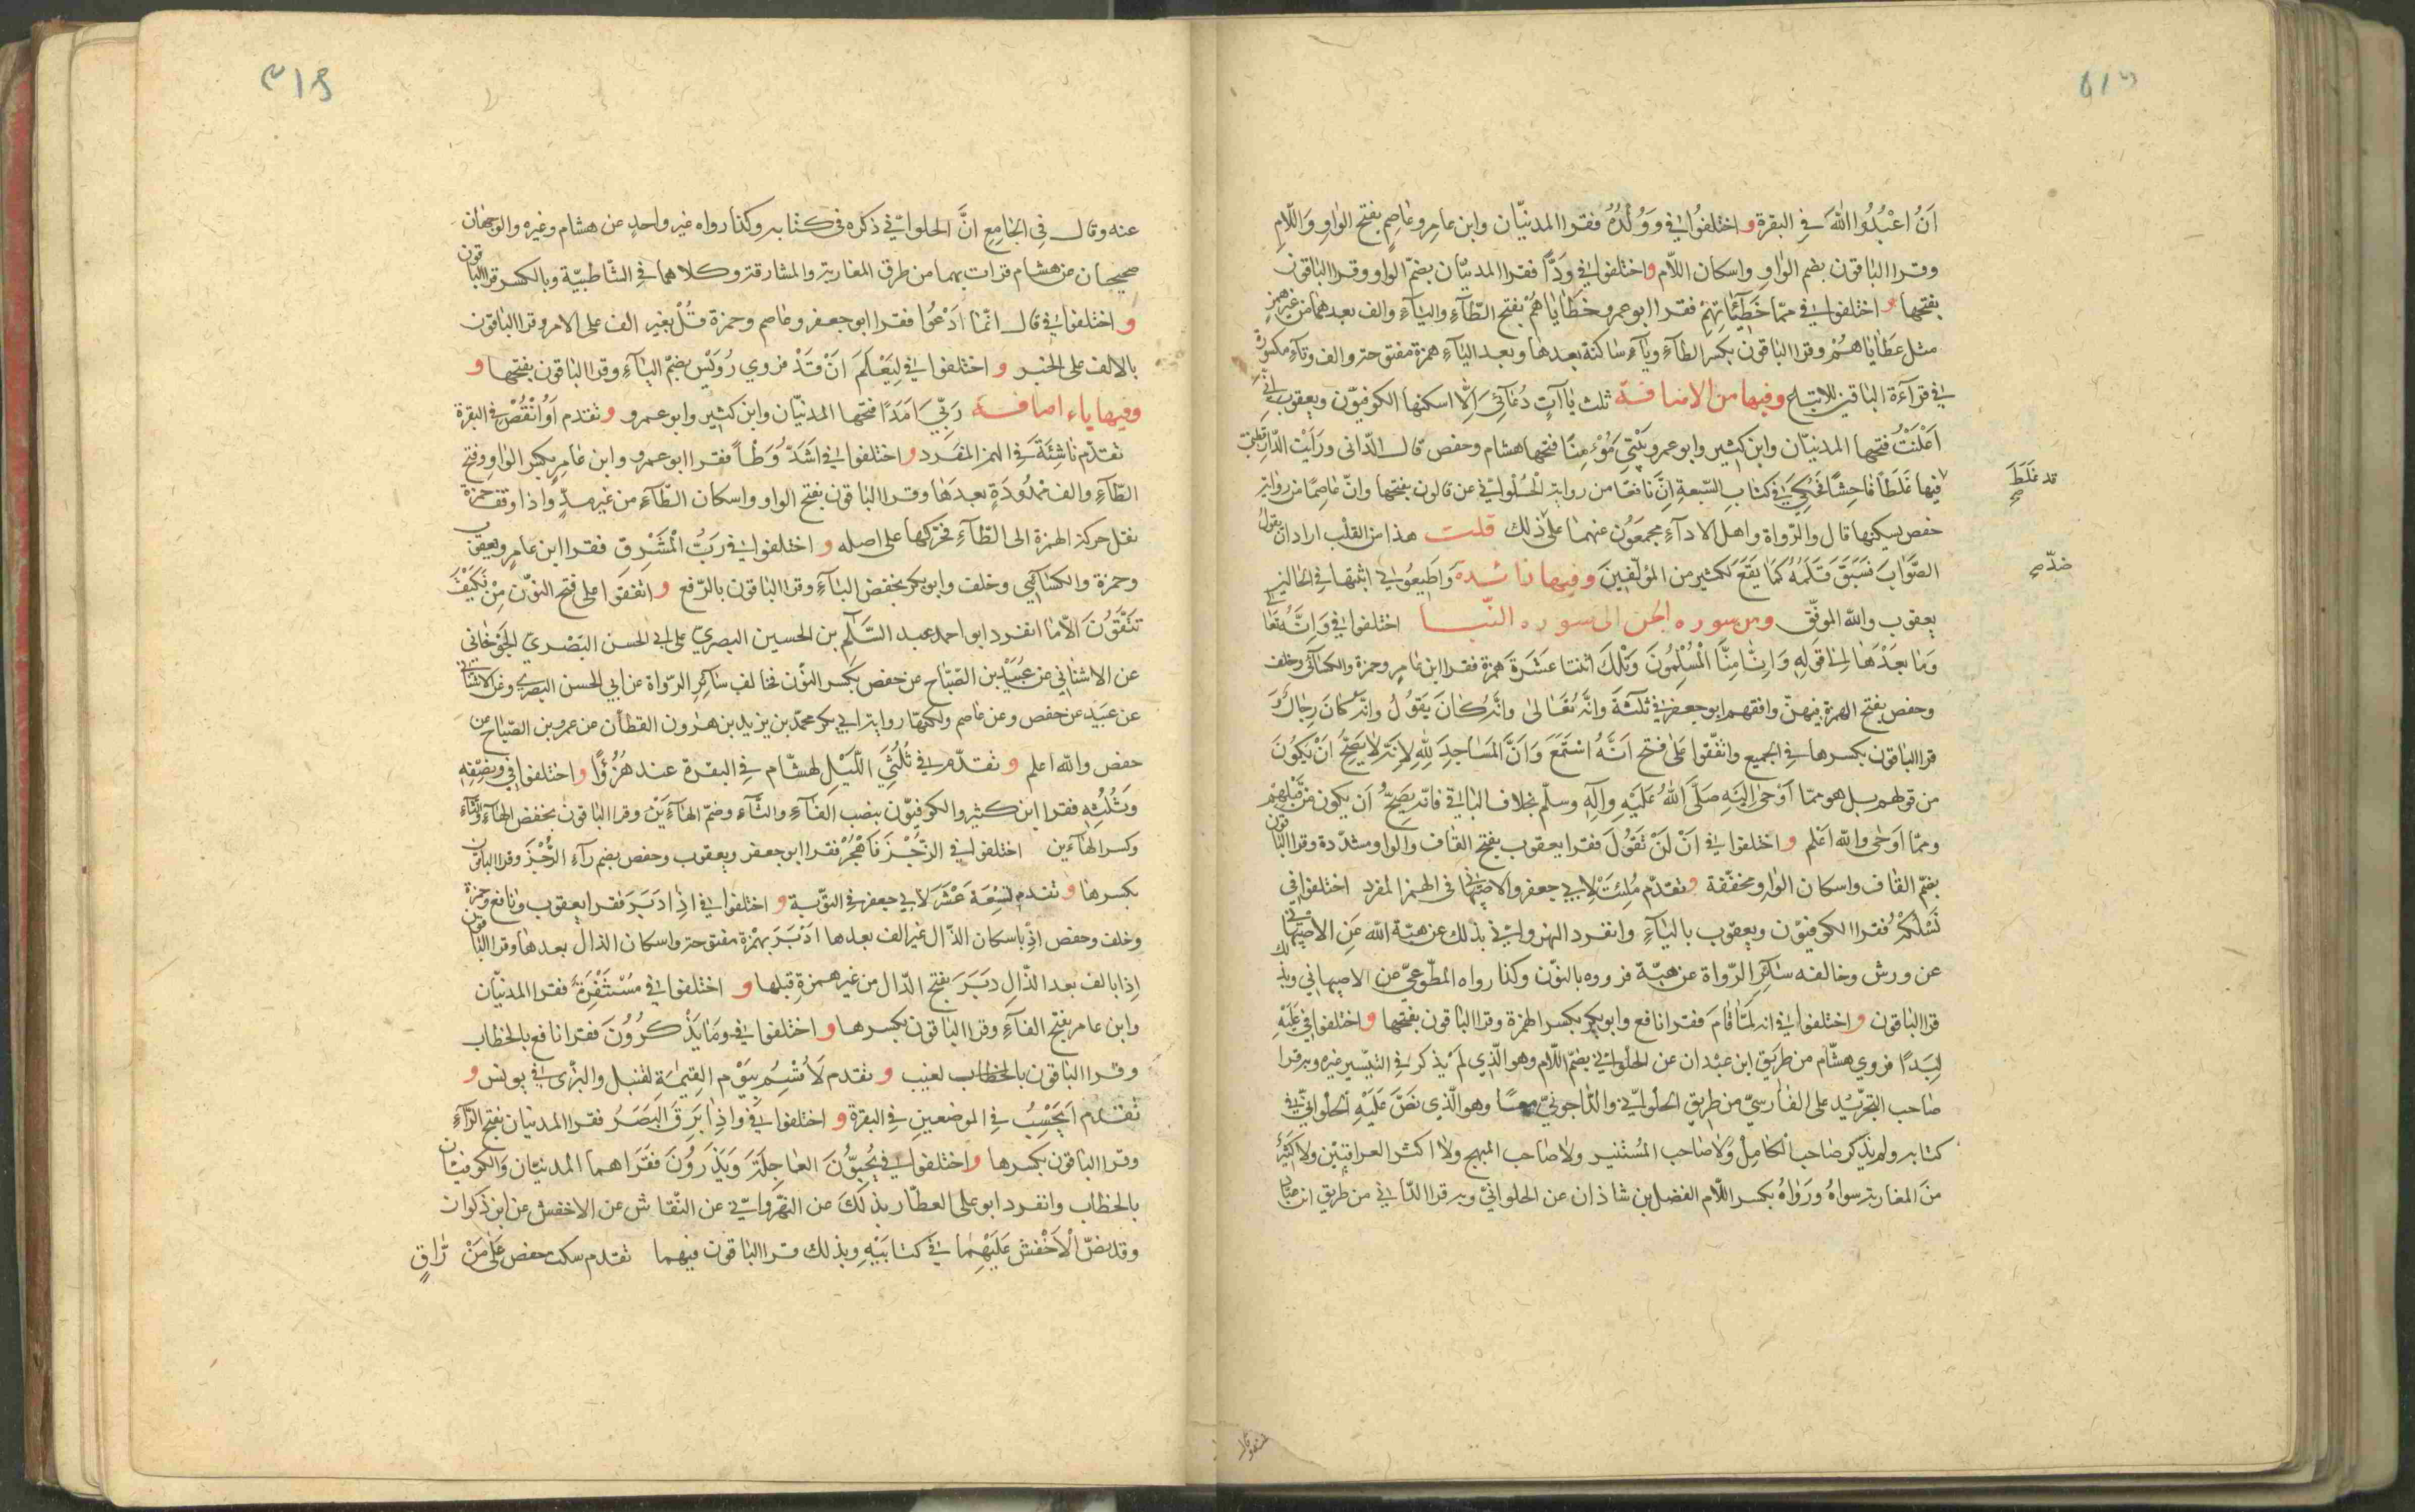 اَنُ اعْبُدُوا اللهَ فِي البقرة و اختلفوا في وَوَلَدُهُ فقرا المدنيّان وابن عامر وعاصم بفتح الواو واللّام
وقرا الباقون بضم الواو واسكان اللّام و اختلفوا في وَدًّا فقرا المدنيّان بضمّ الواو وقرا الباقون
بفتحها و اختلفوا في ممّا خَطِيئَاتِهِمْ فقرا ابو عمرو خَطَايَاهُمْ بفتح الطّآءِ واليآءِ والف بعدهما من غير همزٍ
مثل عَطَايَاهُمْ وقرا الباقون بكسر الطآءِ ويآءٍ ساكنة بعدها وبعد اليآءِ همزة مفتوحة والف وتآءٍ مكسورة
في قرآءة الباقين للاتباع وفيها من الاضافة ثلث ياآتٍ دُعَآئِي اِلَّا اسكنها الكوفيّون ويعقوب اِنِّي
اَعْلَنْتُ فتحها المدنيّان وابن كثير وابو عمرو بَيْتِيَ مُؤْمِنًا فتحها هشام وحفص قال الدّاني ورَأيْت الدّارقطني
فيها غَلَطًا فاحِشًا فَحَكَى في كتاب السّبعة اِنَّ نافعًا من رواية الحُلْوانيّ عن قالون بفتحها وانّ عاصمًا من رواية
قد غَلَطَ صح
حفص يسكنها قال والرّواة واهل الادآءِ مجمعون عنهما على ذلك قلت هذا من القلب اراد ان يقول
الصَّوَابَ فسَبَقَ قَلَمُهُ كَمَا يَقَعُ لكثير من المؤلّفِينَ وفيها زائدة وَاَطِيعُونِي اثبتها في الحالين
ضدّ صح
يعقوب والله الموفّق ومن سورة الجن الى سورة النّبا اختلفوا في وَاَنَّهُ تعَالى
وَمَا بعدَهَا اِلى قَوْلِهِ وَاِنَّا مِنَّا الْمُسْلِمُونَ وَتِلْكَ اثنتا عَشَرَةَ همزة فقرا ابن عامر وحمزة والكسآئي وخلف
وحفص بفتح الهمزة فيهنّ وافقهم ابو جعفر في ثلثة وَانَّهُ تَعَالى وانّهُ كَانَ يَقُولُ وانّهُ كَانَ رِجَالٌ وَ
قرا الباقون بكسرها في الجميع واتّفقوا عَلى فتح اَنَّهُ اسْتَمَعَ وَاَنَّ المَسَاجِدَ لِلهِ لِاَنَّهُ لا يَصِحُّ اَنْ يَكُونَ
من قولهم بل هو ممّا اَوْحَى اِلَيْهِ صَلَّى اللهُ عَلَيْهِ وَآلِهِ وسلّم بخلاف الباقي فانّه يَصِحُّ اَن يكون من قَبْلِهِم
وممّا اَوحى والله اعلم و اختلفوا في اَنْ لَنْ تَقُولَ فقرا يعقوب بفتح القاف والواو مشدّدة وقرا الباقون
بضمّ القاف واسكان الواو مخفّفة وتقدّم مُلِئَتْ لِابي جعفر والاصبَهاني في الهمز المفرد اختلفوا في
نَسْلُكْهُ فقرا الكوفيّون ويعقوب باليآءِ وانفرد النهروانيّ بذلك عن هبة الله عَن الاصبَهاني
عن ورش وخالفه سآئر الرّواة عن هبة فرووه بالنّون وكذا رواه المطّوعيّ عن الاصبهاني وبذلك
قرا الباقون و اختلفوا في انه لَمّا قَامَ فقرا نافع وابو بكر بكسر الهمزة وقرا الباقون بفتحها و اختلفوا في عَلَيْهِ
لِبَدًا فروي هشام من طريق ابن عبدان عن الحلوانيّ بضمّ اللّام وهو الّذي لَمْ يَذكر في التيسير غيره وبه قرا
صاحب التجريد على الفارسيّ من طريق الحلوانيّ والدّاجونيّ معًا وهو الّذي نَصَّ عَلَيْهِ الحلوانيّ في
كتابه ولم يَذكر صاحب الكامل ولا صاحب المُستنير ولا صاحب المبهج ولا اكثر العراقيّين ولا كثير
من المغاربة سِواهُ ورَواهُ بكسر اللّام الفضل بن شاذان عن الحلوانيّ وبه قرا الدّاني من طريق ابن عبّاد
عنه وقال في الجامِع انَّ الحلوانيّ ذكره في كتابه وكذا رواه غير واحدٍ عن هشام وغيره والوجهان
صحيحان عن هشام قرات بهما من طرق المغاربة والمشارقة وكلاهما في الشّاطبيّة وبالكسر قرا الباقون
و اختلفوا في قال انّمَا اَدْعُوا فقرا ابو جعفر وعاصم وحمزة قُلْ بغير الف على الامر وقرا الباقون
بالالف على الخبر و اختلفوا في لِيَعْلَمَ اَنْ قَدْ فروي رُوَيْس بضمّ اليآءِ وقرا الباقون بفتحها و
وفيها ياء اضافة رَبِّيَ اَمَدًا فتحها المدنيّان وابن كثير وابو عمرو و تقدم اَوُانْقُصْ في البقرة
تقدّم نَاشِئَةَ في الهمز المفرد و اختلفوا في اَشَدُّ وَطْأً فقرا ابو عمرو وابن عامر بكسر الواو وفتح
الطّآءِ والف ممدُودَةٍ بعدَها وقرا الباقون بفتح الواو واسكان الطّآءِ من غير مدٍّ واذا وقف حمزة
نقل حركة الهمزة الى الطّآءِ فحرّكها على اصله و اختلفوا في رَبُّ الْمَشْرِق فقرا ابن عامر ويعقوب
وحمزة والكسآئي وخلف وابو بكر بخفض البآءِ وقرا الباقون بالرّفع و اتّفقوا على فتح النّون مِنْ فَكَيْفَ
تَتَّقُونَ الّا ما انفرد ابو احمد عبد السَّلٰم بن الحسين البصريّ على ابي الحسن البَصْريّ الجَوْخَاني
عن الاشناني عن عُبَيْد بن الصّبّاح عن حفص بكسر النّون فخالف سآئر الرّواة عن ابي الحسن البصري وعن الاشناني
عن عبَيد عن حفص وعن عاصم ولكنّها رواية ابي بكر محمّد بن يزيد بن هٰرون القطّان عن عمرو بن الصّبّاح عن
حفص والله اعلم و تقدّم في ثُلُثَيِ الّيْلِ لهشام في البقرة عند هُزُوًا و اختلفوا في ونِصْفِهِ
وَثُلُثِهِ فقرا ابن كثير والكوفيّون بنصب الفآءِ والثّآءِ وضمّ الهآءَيْن وقرا الباقون بخفض الفآءِ والثّآءِ
وكسر الهآءين اختلفوا في الرُّجْزَ فَاهْجُرْ فقرا ابو جعفر ويعقوب وحفص بضم رآءِ الرُّجْزَ وقرا الباقون
بكسرها و تقدم تِسْعَةَ عَشَرَ لابي جعفر في التّوبة و اختلفوا في اِذْ اَدْبَرَ فقرا يعقوب ونافع وحمزة
وخلف وحفص اِذْ باسكان الذّال غير الف بعدها اَدْبَرَ بهمْزة مفتوحة واسكان الدال بعدها وقرا الباقون
اِذَا بالف بعد الذّالِ دَبَرَ بفتح الدّال من غير همزة قبلها و اختلفوا في مُسْتَنْفِرَة فقرا المدنيّان
وابن عامر بفتح الفآءِ وقرا الباقون بكسرها و اختلفوا في ومَا يَذْكُرُونَ فقرا نافع بالخطاب
وقرا الباقون بالخطاب لغيب و تقدم لَا اُقْسِمُ بِيَوْمِ القِيٰمَةِ لقنبل والبزّى في يونس و
تقدم اَيَحْسِبُ في الموضعين في البقرة و اختلفوا في فَاِذَا بَرِقَ البَصَرُ فقرا المدنيان بفتح الرّآءِ
وقرا الباقون بكسرها و اختلفوا في يُحِبُّونَ العَاجِلَةَ وَيَذَرُونَ فقَرَاهما المدنيّان والكوفيّان
بالخطاب وانفرد ابو على العطّار بذلك عن النّهروانيّ عن النّقّاش عن الاخفش عن ابن ذكوان
وقد نصّ الْاَخْفش عَلَيْهِمَا في كتابَيْهِ وبذلك قرا الباقون فيهما تقدم سكت حفص عَلى مَنْ رَاقٍ